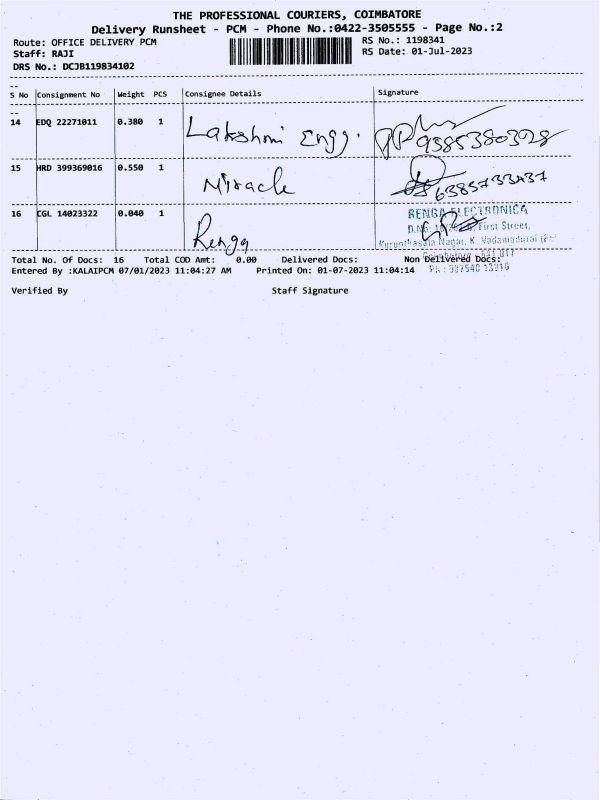 THE PROFESSIONAL COURIERS, COIMBATORE
Delivery Runsheet - PCM - Phone No.:0422-3505555 - Page No.:2
Route: OFFICE DELIVERY PCM
RS No.: 1198341
Staff: RAJI
RS Date: 01-Jul-2023
DRS No.: DCJB119834102
S No Consignment No Weight PCS Consignee Details Signature
14 EDQ 22271011 0.380 1 Lakshmi Engg. 9385380328
15 HRD 399369016 0.550 1 Miracle 6385733437
16 CGL 14023322 0.040 1 Renga
RENGA ELECTRONICA
First Street,
Nagar, K. Vadamadurai
Total No. Of Docs: 16 Total COD Amt: 0.00 Delivered Docs: Non Delivered Docs:
Entered By :KALAIPCM 07/01/2023 11:04:27 AM Printed On: 01-07-2023 11:04:14
Verified By Staff Signature